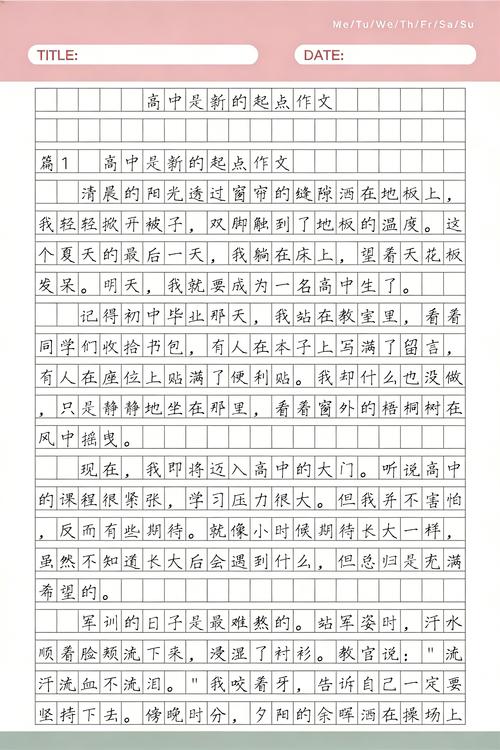 Me/Tu/We/Th/Fr/Sa/Su
TITLE:
DATE:
高中是新的起点作文
篇1 高中是新的起点作文
清晨的阳光透过窗帘的缝隙洒在地板上，
我轻轻掀开被子，双脚触到了地板的温度。这
个夏天的最后一天，我躺在床上，望着天花板
发呆。明天，我就要成为一名高中生了。
记得初中毕业那天，我站在教室里，看着
同学们收拾书包，有人在本子上写满了留言，
有人在座位上贴满了便利贴。我却什么也没做
，只是静静地坐在那里，看着窗外的梧桐树在
风中摇曳。
现在，我即将迈入高中的大门。听说高中
的课程很紧张，学习压力很大。但我并不害怕
，反而有些期待。就像小时候期待长大一样，
虽然不知道长大后会遇到什么，但总归是充满
希望的。
军训的日子是最难熬的。站军姿时，汗水
顺着脸颊流下来，浸湿了衬衫。教官说："流
汗流血不流泪。"我咬着牙，告诉自己一定要
坚持下去。傍晚时分，夕阳的余晖洒在操场上